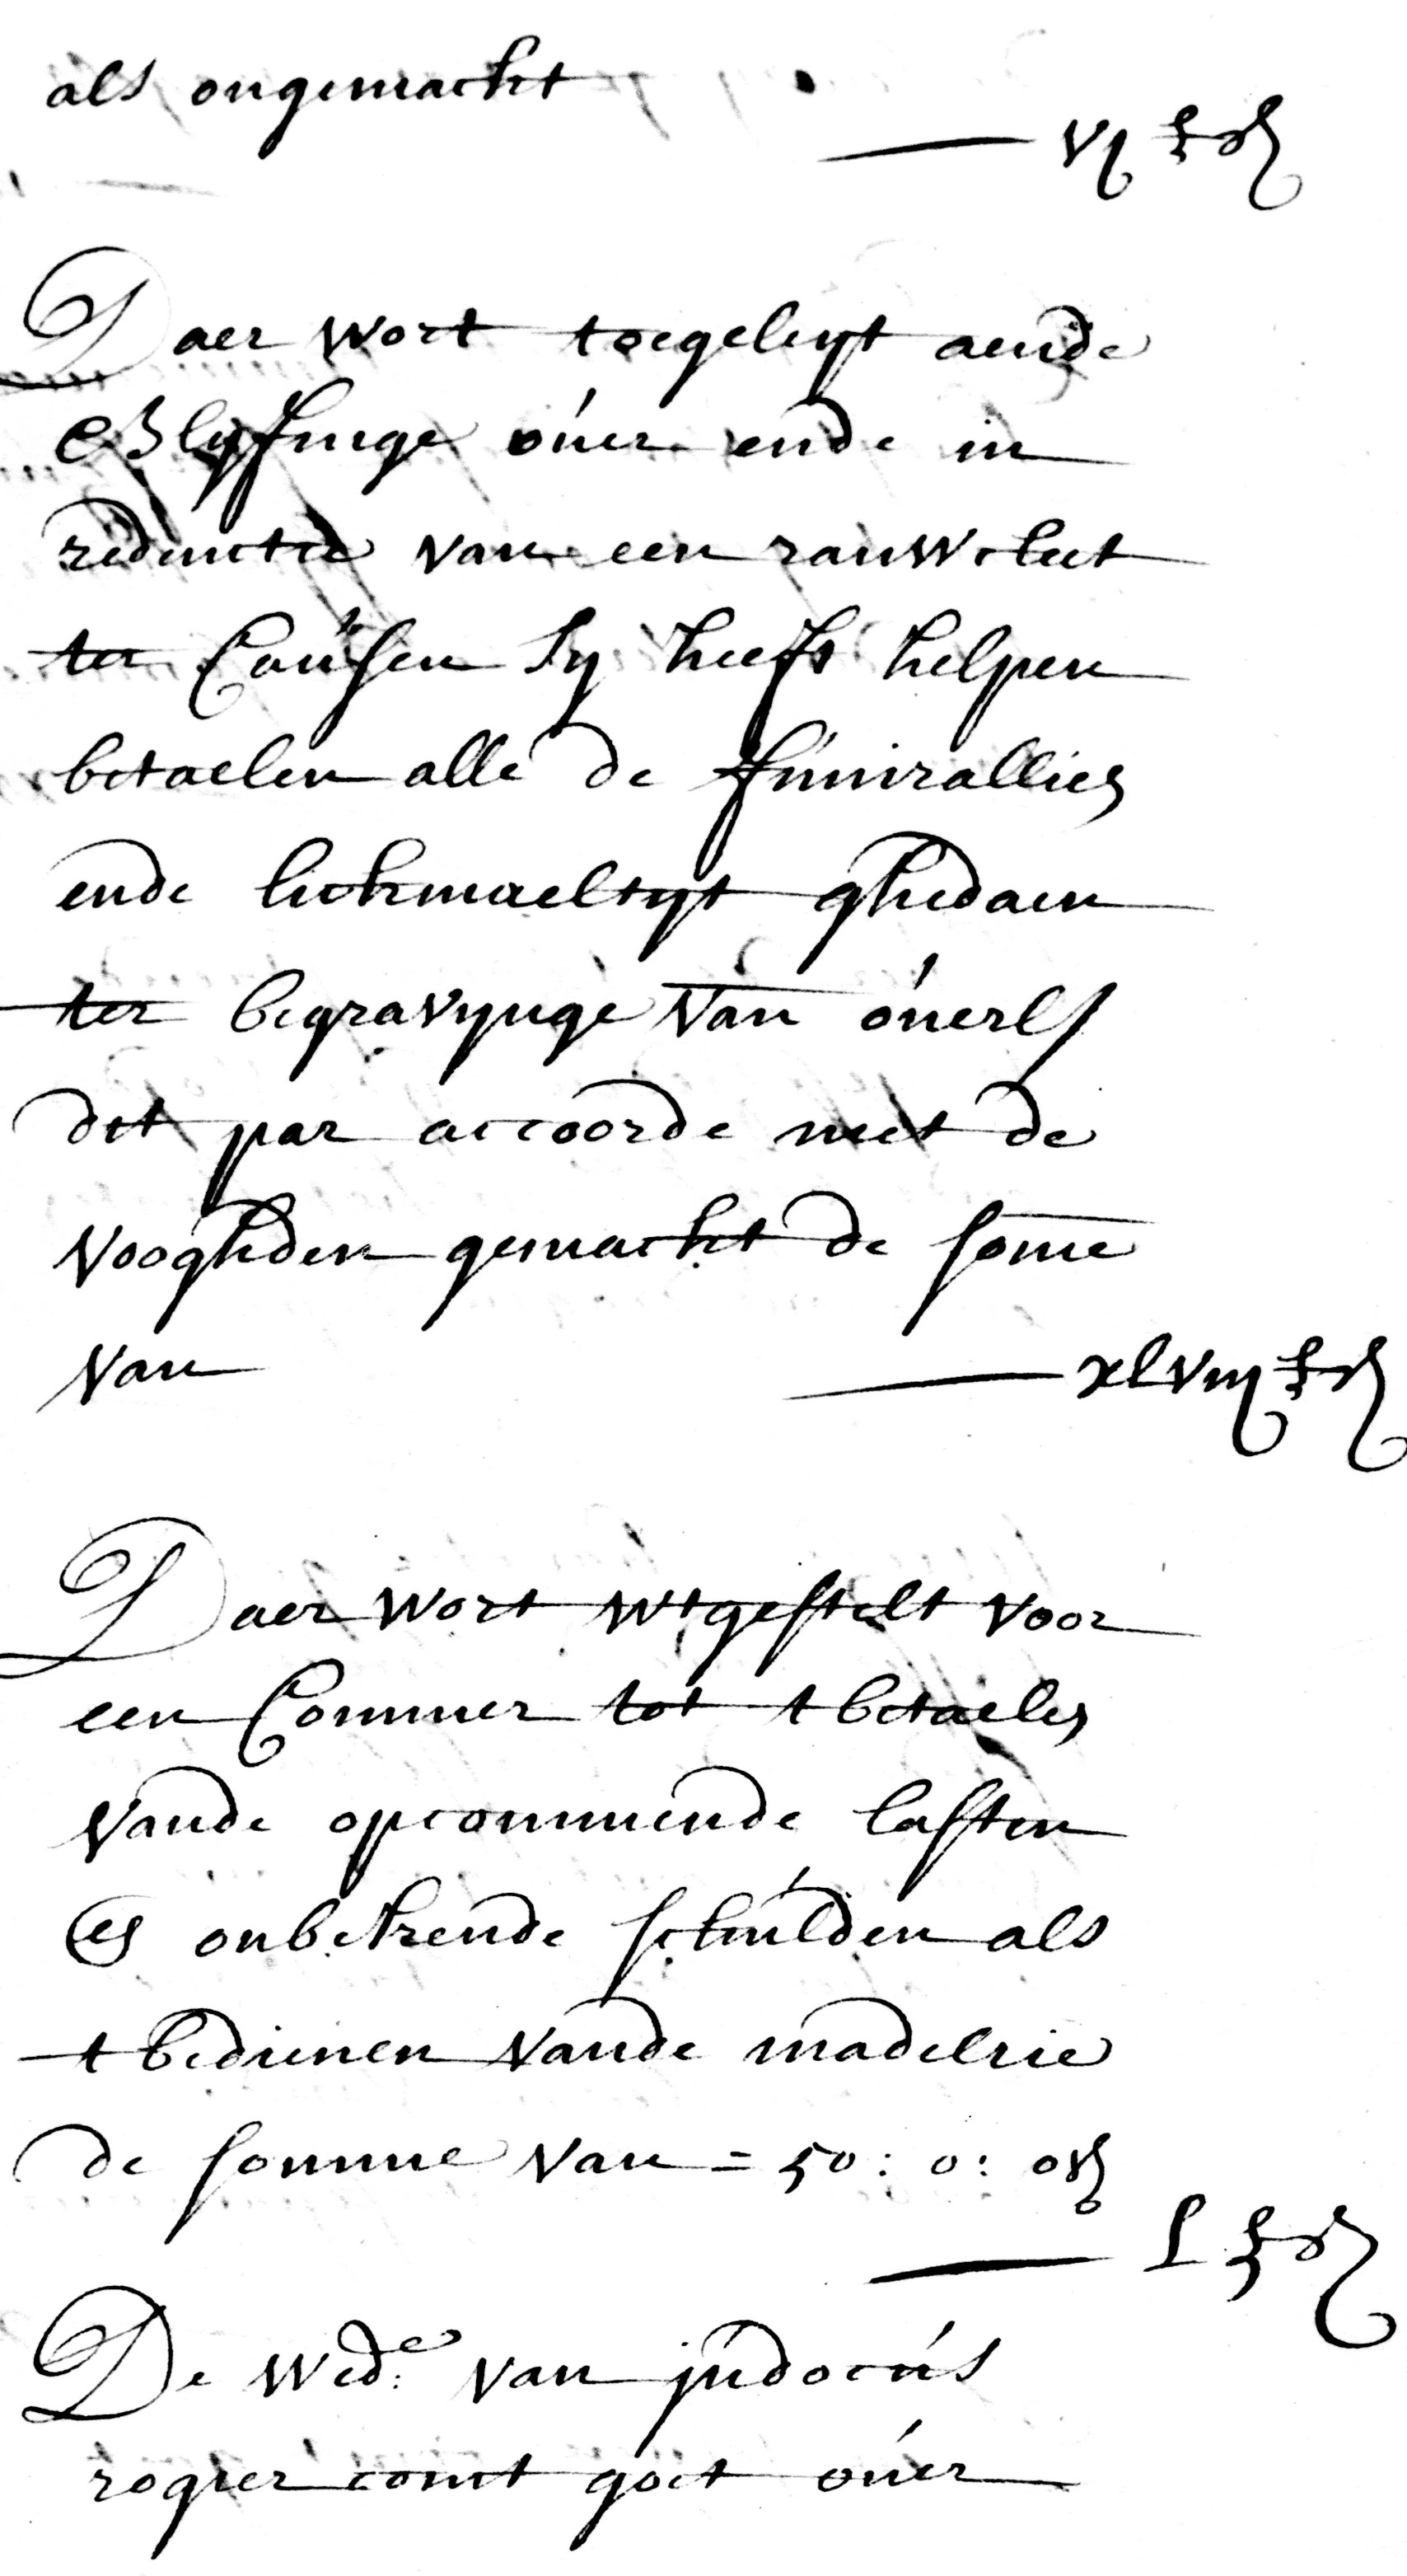 als ongemackt
vj £ gr
Daer wort toegeleyt aende
Blyfvinge over ende in
reductie van een rauwcleet
ter Causen sy heeft helpen
betaelen alle de funirallies
ende lickmaeltyt ghedaen
ter begravynge van overls
dit par accoorde met de
vooghden gemackt de some
van xlviij £ gr
Daer wort wtgestelt voor
een Commer tot tbetaelen
vande opcommende lasten
es onbekende schulden als
tbedienen vande madelrie
de somme van = 50 : 0 : 0 gr
L £ gr
De Wed.e van judocus
rogier comt goet over